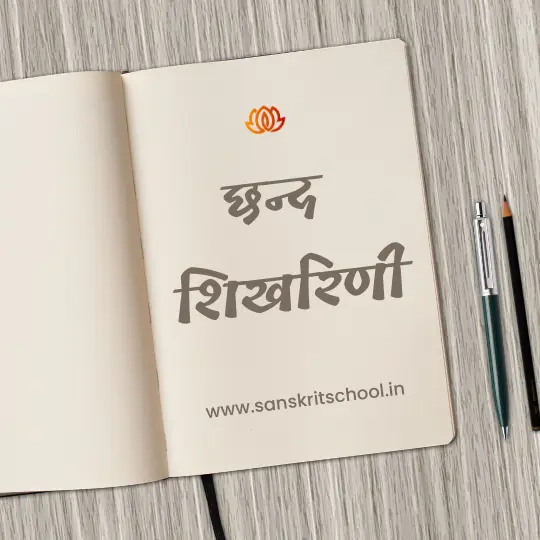 छन्द
शिखरिणी
www.sanskritschool.in